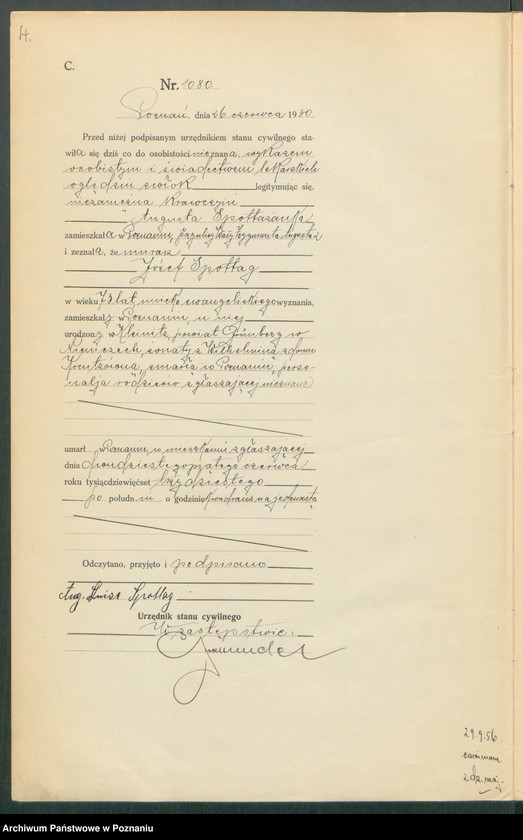 4.
C.
Nr. 1080
Poznań, dnia 26 czerwca 1930
Przed niżej podpisanym urzędnikiem stanu cywilnego sta-
wiła się dziś co do osobistości nieznana, wykazem
osobistym i świadectwem lekarskich
oględzin zwłok legitymując się,
niezamężna krawczyni
Augusta
zamieszkała w Poznaniu, przy ulicy Zygmunta Augusta 2
i zeznała, że murarz
Józef Spottag
w wieku 73 lat, wyznania,
zamieszkały w Poznaniu, u niej
urodzony w Kleinitz, powiat Grünberg w
Niemczech, żonaty z Wilhelminą z domu
zmarłą w Poznaniu, perso-
nalja rodziców zgłaszającej nieznane
umarł w Poznaniu w mieszkaniu zgłaszającej
dnia dwudziestego piątego czerwca
roku tysiącdziewięćset trzydziestego
po połudn iu o godzinie kwadrans na jedenastą
Odczytano, przyjęto i podpisano
Aug. Luise Spottag
Urzędnik stanu cywilnego
W zastępstwie:
29.9.56.
Archiwum Państwowe w Poznaniu